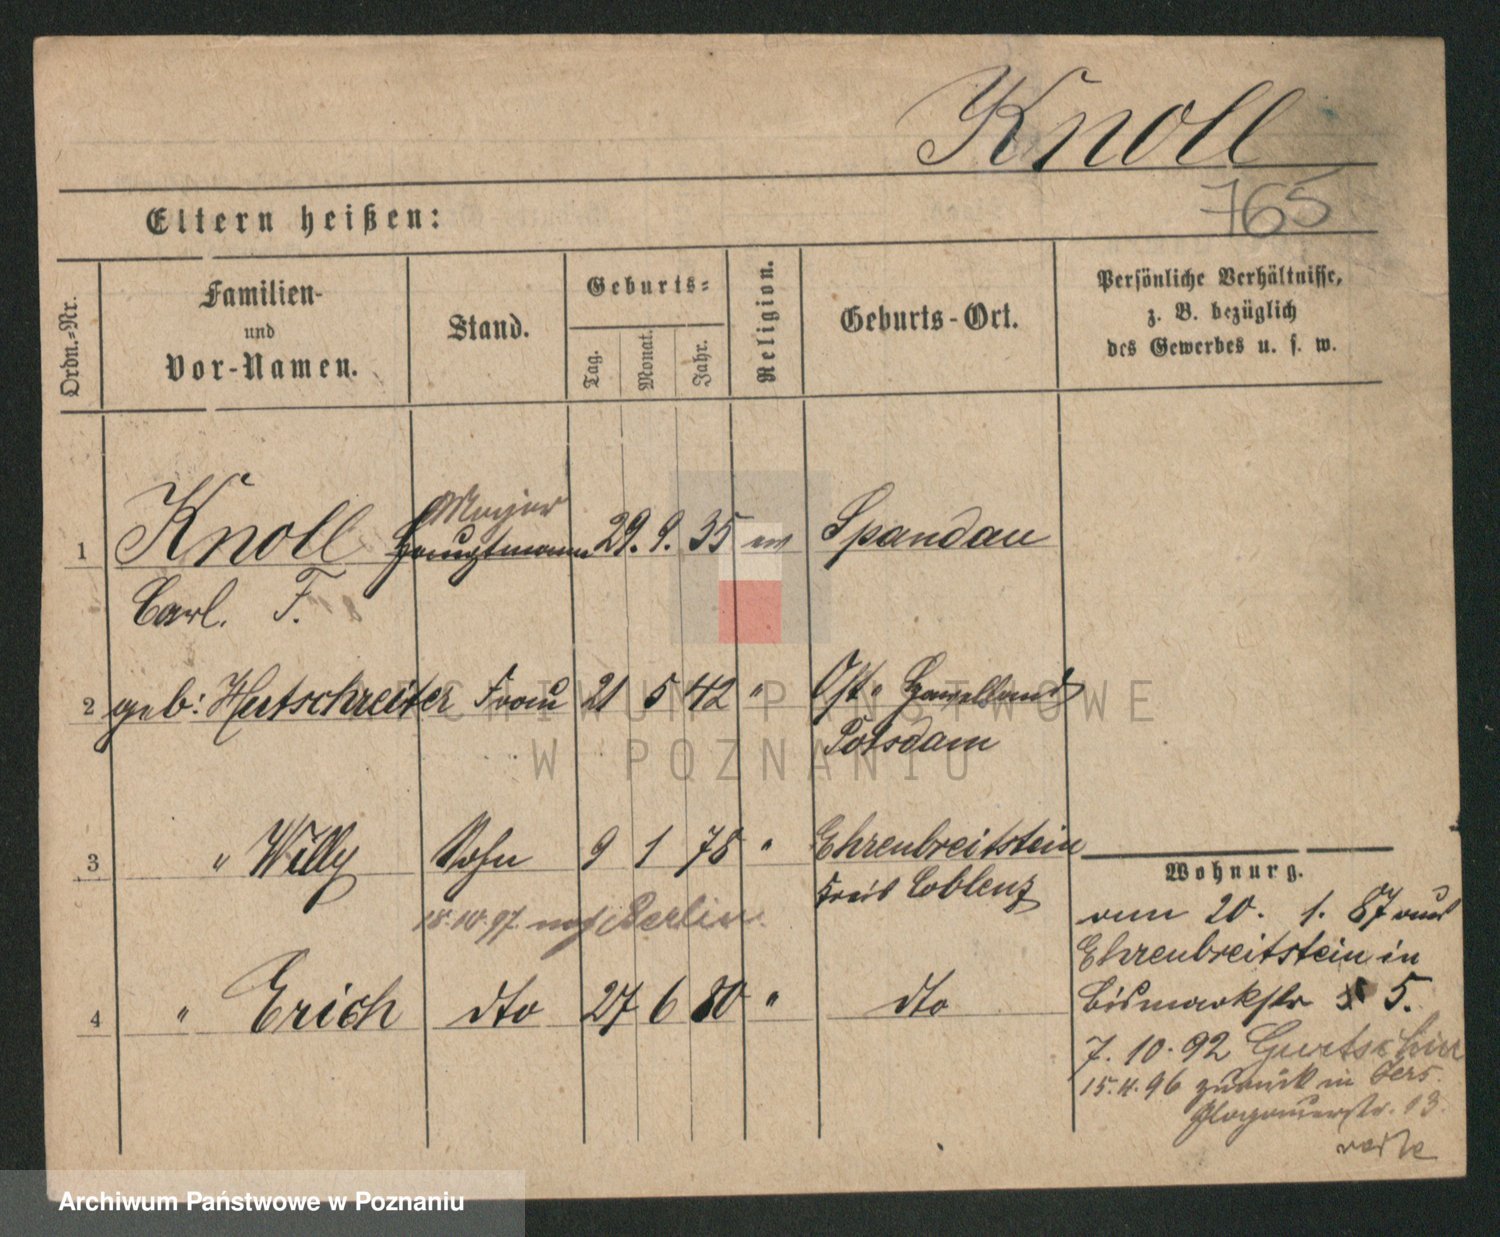 Knoll
765
Eltern heißen:
Ordn.-Nr.
Familien-
und
Vor-Namen.
Stand.
Geburts-
Tag.
Monat.
Jahr.
Religion.
Geburts-Ort.
Persönliche Verhältnisse,
z. B. bezüglich
des Gewerbes u. s. w.
Major
1 Knoll Hauptmann 29. 9. 35 ev Spandau
Carl. F.
2 geb: Hutschreiter Frau 21 5 42 " Ost " Havelland
Potsdam
3 " Willy Sohn 9 1 78 " Ehrenbreitstein
Kreis Coblenz
18.10.97. nach Berlin.
4 " Erich dto 27 6 80 " dto
Wohnung.
20. 1. 87
Ehrenbreitstein in
Bismarkstr 5.
7. 10. 92
15.4.96 zurück in
Glogauerstr. 13.
ARCHIWUM PAŃSTWOWE
W POZNANIU
Archiwum Państwowe w Poznaniu